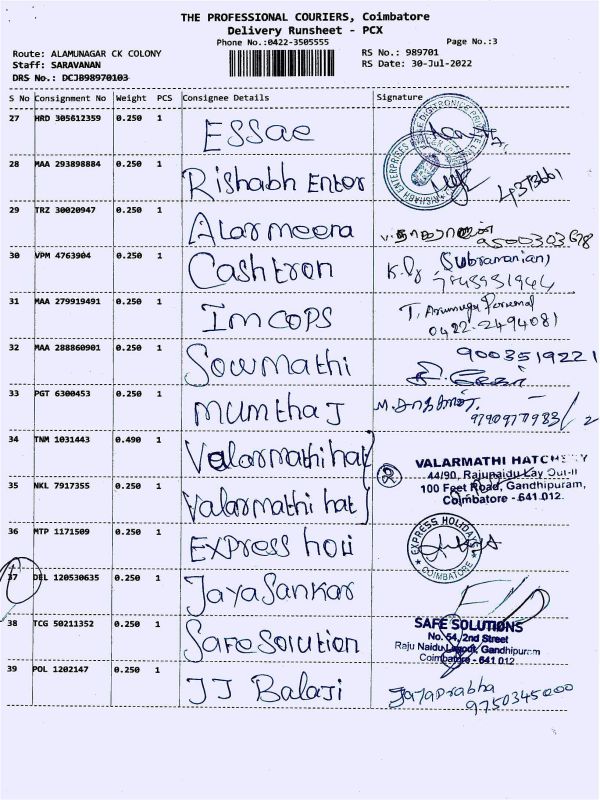 THE PROFESSIONAL COURIERS, Coimbatore
Delivery Runsheet - PCX
Phone No.:0422-3505555
Page No.:3
Route: ALAMUNAGAR CK COLONY
RS No.: 989701
Staff: SARAVANAN
RS Date: 30-Jul-2022
DRS No.: DCJB98970103
S No Consignment No Weight PCS Consignee Details Signature
27 HRD 305612359 0.250 1 ESSae
28 MAA 293898884 0.250 1 Rishabh Enter
29 TRZ 30020947 0.250 1 Alarmeena
9500303678
30 VPM 4763904 0.250 1 Cashtron Subramanian
31 MAA 279919491 0.250 1 Imcops T. Arumuga Perumal
0422-2494081
32 MAA 288860901 0.250 1 Sowmathi 9003519221
33 PGT 6300453 0.250 1 mumthaJ
34 TNM 1031443 0.490 1 Valarmathi hat
VALARMATHI HATCHERY
44/90, Rajunaidu Lay Out-II
35 NKL 7917355 0.250 1 Valarmathi hat 2
100 Feet Road, Gandhipuram,
Coimbatore - 641 012.
36 MTP 1171509 0.250 1 Express holi EXPRESS HOLIDAYS COIMBATORE
37 DEL 120530635 0.250 1 JayaSankar
38 TCG 50211352 0.250 1 Safe Solution SAFE SOLUTIONS
No. 54, 2nd Street
Raju Naidu Layout, Gandhipuram
Coimbatore - 641 012
39 POL 1202147 0.250 1 JJ Balaji Jayaprabha
9750345000